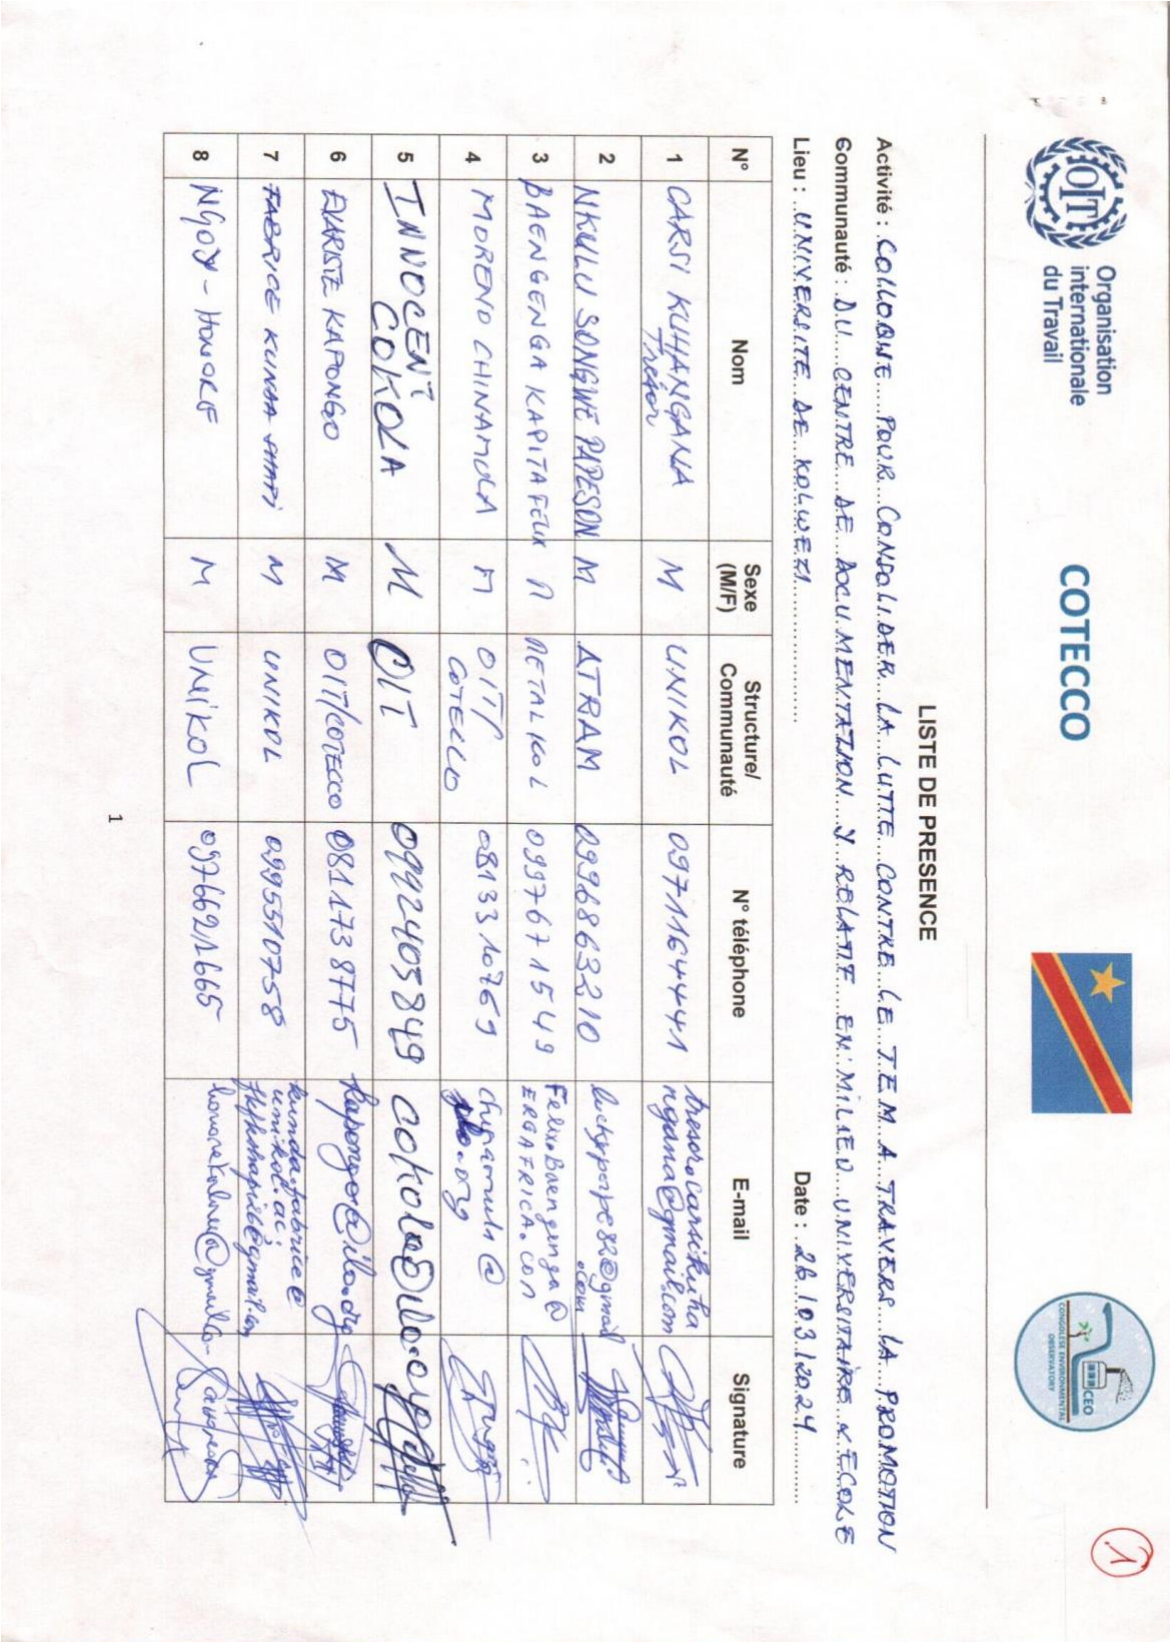 Organisation
internationale
du Travail
OIT
COTECCO
CEO
CONGOLESE ENVIRONMENTAL
OBSERVATORY
1
LISTE DE PRESENCE
Activité : COLLOQUE POUR CONSOLIDER LA LUTTE CONTRE LE TEM A TRAVERS LA PROMOTION
Communauté : DU CENTRE DE DOCUMENTATION Y RELATIF EN MILIEU UNIVERSITAIRE & ECOLE
Lieu : UNIVERSITE DE KOLWEZI Date : 26/03/2024
N° Nom Sexe (M/F) Structure/ Communauté N° téléphone E-mail Signature
1 CARSI KUHANGANA Trésor M UNIKOL 0971164441 tresorcarsikuhangana@gmail.com
2 NKULU SONGWE PAPESON M ATRAM 0996863210 luckypope82@gmail.com
3 BAENGENGA KAPITA FELIX M METALKOL 0997671549 Felix.Baengenga@ERGAFRICA.com
4 MORENO CHINAMULA M OIT/ COTECCO 0813310769 chinamula@ilo.org
5 INNOCENT COKOLA M OIT 0992405849 cokola@ilo.org
6 EVARISTE KAPONGO M OIT/COTECCO 0811738775 kapongo@ilo.org
7 FABRICE KUNDA M UNIKOL 0995510758 kunda.fabrice@unikol.ac
8 NGOY - HONORE M UNIKOL 0976621665
1